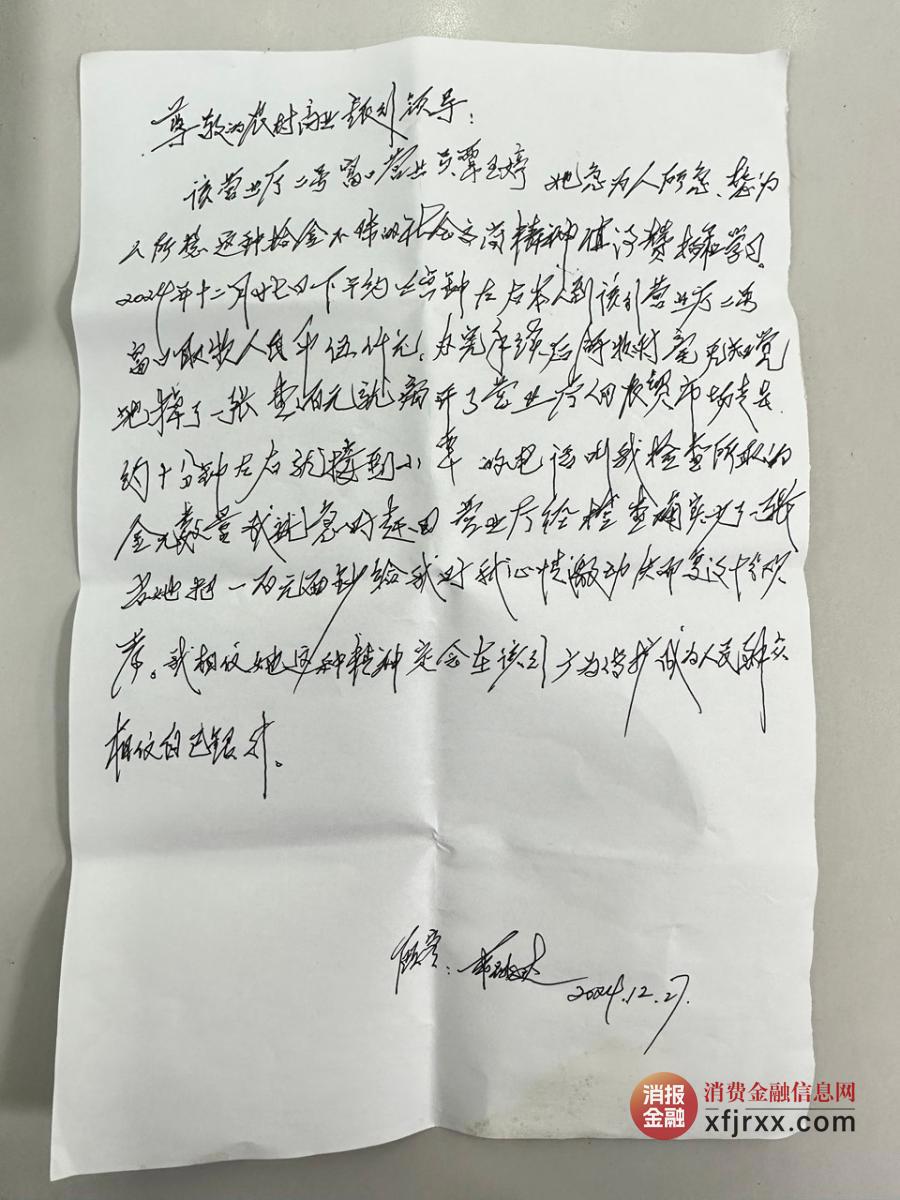 尊敬的农村商业银行领导:
该营业厅二号窗口营业员覃玉婷 她急为人所急、想为
人所想这种拾金不昧的社会高尚精神值得赞扬和学习。
2024年十二月廿七日下午约 点钟左右本人到该行营业厅二号
窗口取款人民币伍仟元,办完手续后 毫无知觉
地掉了一张壹百元就离开了营业厅 农贸市场走去
约十分钟左右就接到小覃的电话叫我检查所取的
金元数量我就急时赶回营业厅经检查确实少了一张
当她把一百元面钞给我时我心情激动 十分
。我相仪她这种精神定会在该行广为 成为人民群众
相仪自己银行。
顾客: 2024.12.27.
消报金融
消费金融信息网
xfjrxx.com